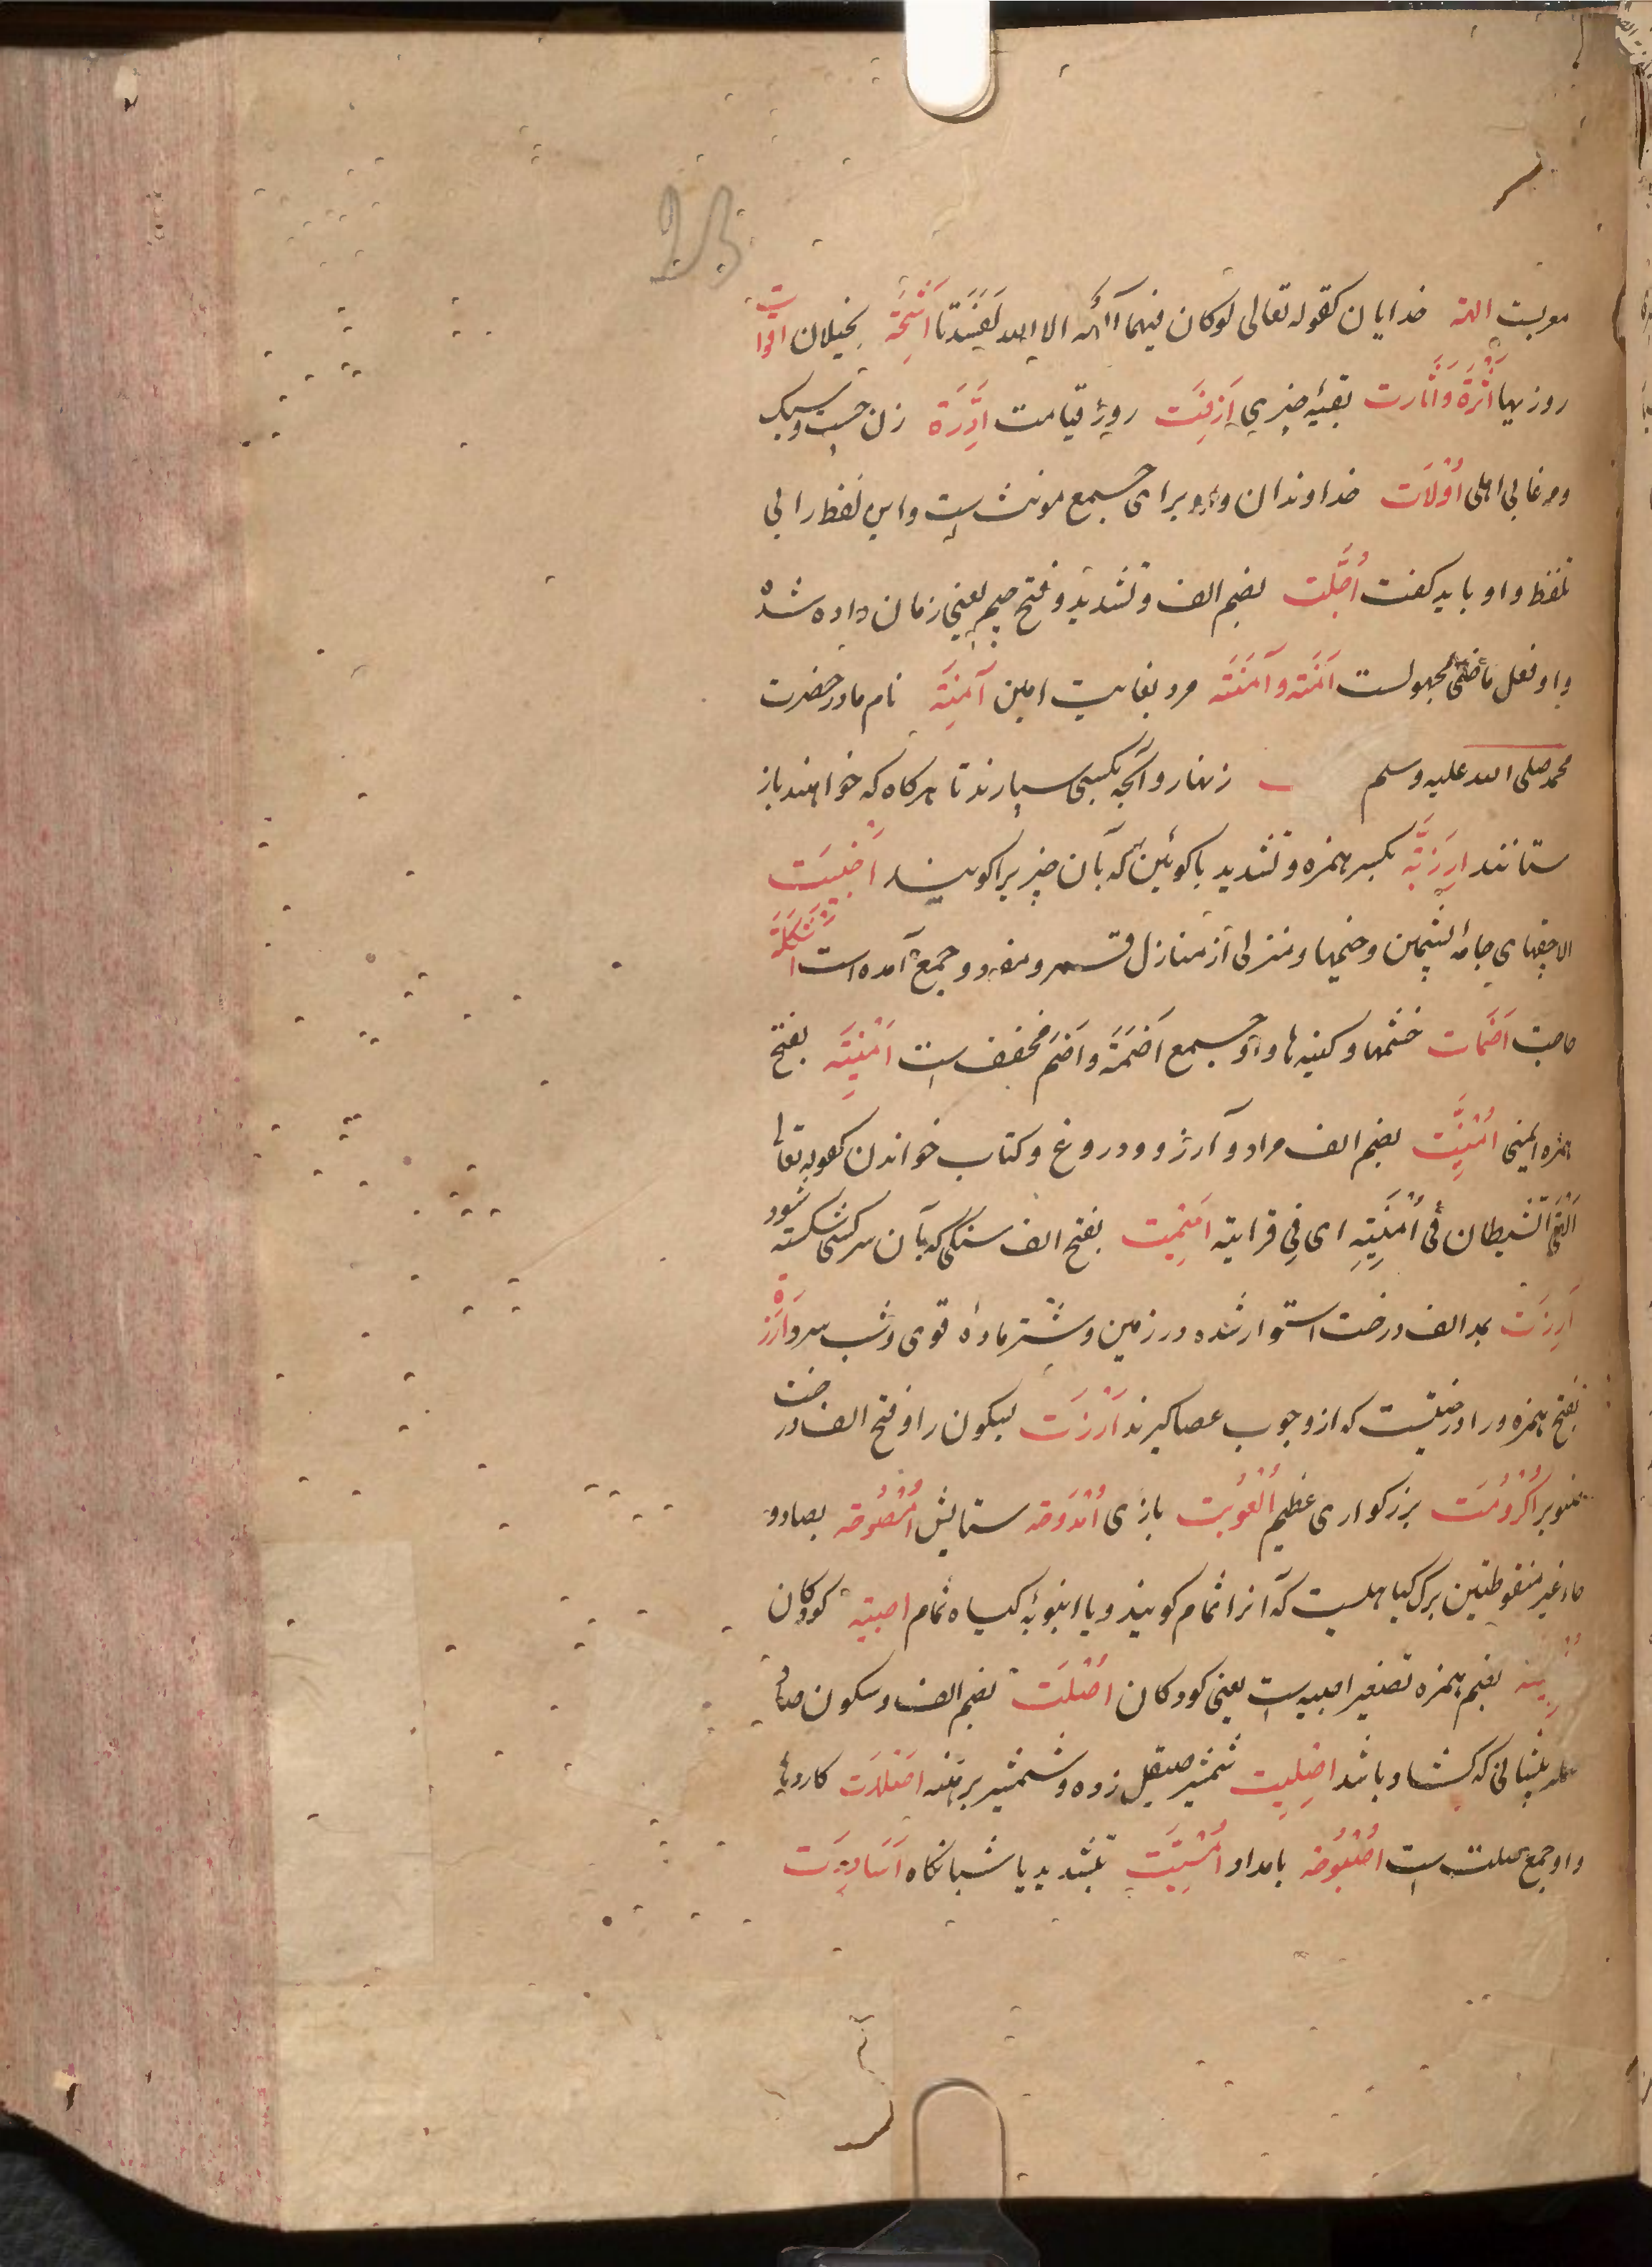 معربست الهة خدایان کقوله تعالی لو کان فیهما آلهة الا الله لَفَسَدَتا اَشِحَّة بخیلان اقوات
روزیها اَثَرَة وَاَثَارت بقیۀ چیزی اَزِفَت روز قیامت زن چست وسبک
اُوْلَات خداوندان واو برای جمع مونث ست واین لفظ را بی
تلفظ واو باید کفت اُجِّلَت بضم الف وتشدید وفتح جیم یعنی زمان داده شده
واو فعل ماضی مجهولست اَمَنَة وآمَنَتَه مرد بغایت امین آمِنَة نام مادر حضرت
محمد صلی الله علیه وسلم زنهار وآنچه بکسی سپارند تا هرکاه که خواهند باز
ستانند اِرْزَبَّة بکسر همزه وتشدید با کوبین که بآن چیز را کوبند اَخْبِیَت
جامۀ پشمین وخیمها ومنزلی از منازل قمر ومفرد وجمع آمده است
اَضَمَات خشمها وکینه ها واو جمع اَضَمَة واَضَم مخفف ست اَمْنِیَّة بفتح
همزه ایمنی اُمْنِیَّت بضم الف مراد وآرزو ودروغ وکتاب خواندن کقوله تعالی
اَلْقَی الشیطان فی اُمْنِیَّتِهِ ای فی قرایته بفتح الف سنکی که بآن سرکشی شکسته شود
آرِزَت بمد الف درخت استوار شده در زمین وشتر ماده قوی وشب سرد اَرَزَة
بفتح همزه ورا درختیست که ازو چوب عصا کیرند اَرْزَت بسکون را وفتح الف درخت
صنوبر اُکْرُومَت بزرکواری عظیم اُلْعُوبَت بازی اُمْدُوحَه ستایش اُمْصُوخَه بصاد و
خاء غیر منقوطتین برک کیاهیست که آنرا ثمام کویند ویا انبوبۀ کیاه ثمام اصبیة کودکان
بضم همزه تصغیر اصبیه ست یعنی کودکان اُصْلَت بضم الف وسکون صاد
پیشانی که کشاد باشد اصلیت شمشیر صیقل زده وشمشیر برهنه اصلات کاردها
واو جمع صلت ست اُصْبُوحَه بامداد اُمْسِیَّت بتشدید یا شبانکاه